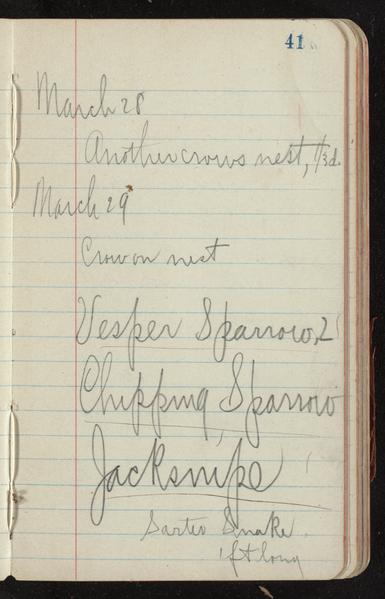 41
March 28
Another crows nest, 1/3 d.
March 29
Crow on nest
Vesper Sparrow, 2
Chipping Sparrow
Jacksnipe 1
Garter Snake.
1 ft long